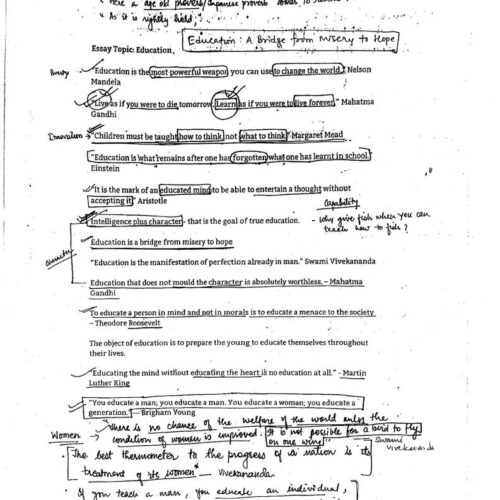 " Here a age old proverb/Japanese proverb
" As it is rightly held,
Education : A Bridge from Misery to Hope
Essay Topic: Education.
"Education is the most powerful weapon you can use to change the world." Nelson
Mandela
"Live as if you were to die tomorrow. Learn as if you were to live forever." Mahatma
Gandhi
Innovation → "Children must be taught how to think, not what to think." Margaret Mead
"Education is what remains after one has forgotten what one has learnt in school."
Einstein
"It is the mark of an educated mind to be able to entertain a thought without
accepting it" Aristotle
Capability
Intelligence plus character - that is the goal of true education.
- Why give fish when you can
teach how to fish?
Education is a bridge from misery to hope
Character
"Education is the manifestation of perfection already in man." Swami Vivekananda
Education that does not mould the character is absolutely worthless. – Mahatma
Gandhi
To educate a person in mind and not in morals is to educate a menace to the society
– Theodore Roosevelt
The object of education is to prepare the young to educate themselves throughout
their lives.
"Educating the mind without educating the heart is no education at all." - Martin
Luther King
"You educate a man; you educate a man. You educate a woman; you educate a
generation." — Brigham Young
Women → "There is no chance of the welfare of the world unless the
condition of women is improved. It is not possible for a bird to fly
on one wing"
Swami
Vivekananda
"The best thermometer to the progress of a nation is its
treatment of its women" – Vivekananda
"If you teach a man, you educate an individual,